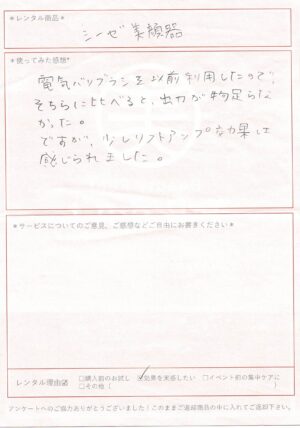 ＊レンタル商品＊
シーゼ美顔器
＊使ってみた感想＊
電気バリブラシを以前利用したので、
そちらに比べると、出力が物足らな
かった。
ですが、少しリフトアップな効果は
感じられました。
＊サービスについてのご意見、ご感想などご自由にお書きください＊
レンタル理由は
□購入前のお試し ☑効果を実感したい □イベント前の集中ケアに
□その他（　　　）
アンケートへのご協力ありがとうございました！このままご返却商品の中に入れてご返却下さい。